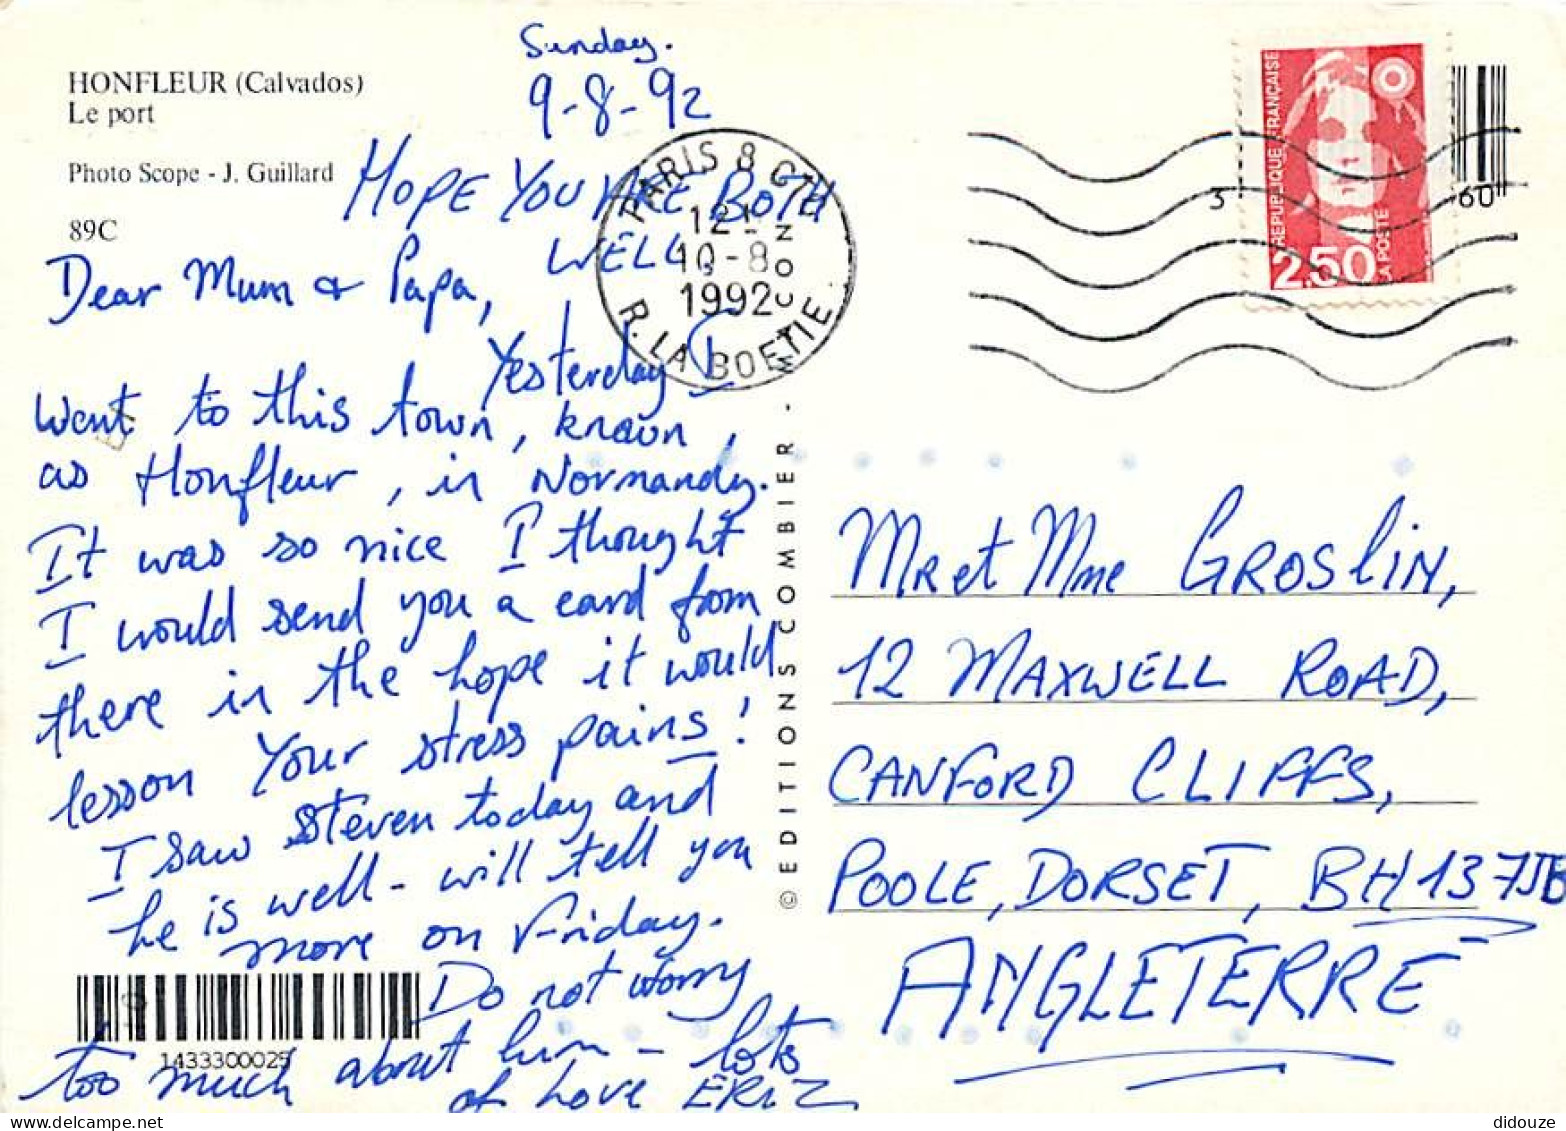 HONFLEUR (Calvados)
Le port
Photo Scope - J. Guillard
89C
Sunday.
9-8-92
HOPE YOU ARE BOTH
WELL
Dear Mum & Papa,
Yesterday I
went to this town, known,
as Honfleur, in Normandy.
It was so nice I thought
I would send you a card from
there in the hope it would
lesson your stress pains!
I saw Steven today and
he is well - will tell you
more on Friday.
Do not worry
too much about him - lots
of love ERIC
1433300025
© EDITIONS COMBIER - MACON
PARIS 8 CTC
12H
10-8
1992
R. LA BOETIE
REPUBLIQUE FRANÇAISE
2,50
LA POSTE
60
Mr et Mme GROSLIN,
12 MAXWELL ROAD,
CANFORD CLIFFS,
POOLE, DORSET, BH13 7JB
ANGLETERRE
didouze